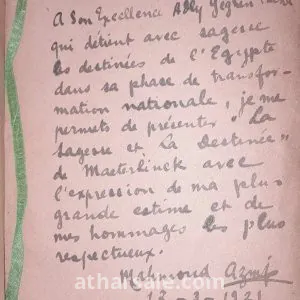 A Son Excellence Adly Yeghen Pacha
qui détient avec sagesse
les destinées de l'Egypte
dans sa phase de transfor-
mation nationale, je me
permets de présenter "La
Sagesse et La Destinée"
de Maeterlinck avec
l'expression de ma plus
grande estime et de
mes hommages les plus
respectueux.
Mahmoud Azmi
1921
atharsale.com